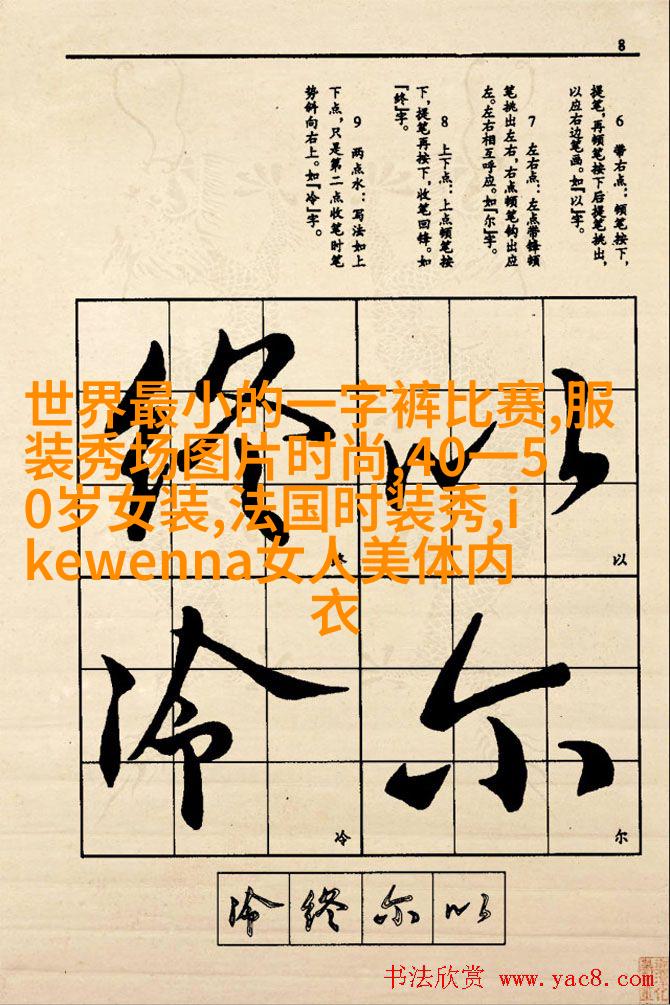 8
6 带右点：顿笔按下，
提笔，再顿笔按下后提笔挑出，
以应右边笔画。如『以』字。
7 左右点：左点带锋顿
笔挑出左右，右点顿笔钩出应
左。左右相互呼应。如『尔』字。
8 上下点：上点顿笔按
下，提笔再按下，收笔回锋。如
『终』字。
9 两点水：写法如上
下点，只是第二点收笔时笔
势斜向右上。如『冷』字。
世界最小的一字裤比赛,服
装秀场图片时尚,40一5
0岁女装,法国时装秀,i
kewenna女人美体内
衣
终 以
终 以
冷 尔
冷 尔
冷 终 尔 以
书法欣赏 www.yac8.com